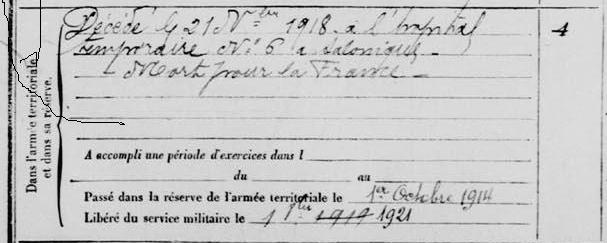 Décédé le 21 Nbre 1918 à l'hopital
temporaire No 6 a Salonique
- Mort pour la France -
4
Dans l'armée territoriale
et dans sa réserve.
A accompli une période d'exercices dans l
du au
Passé dans la réserve de l'armée territoriale le 1er Octobre 1914
Libéré du service militaire le 1 1919 1921